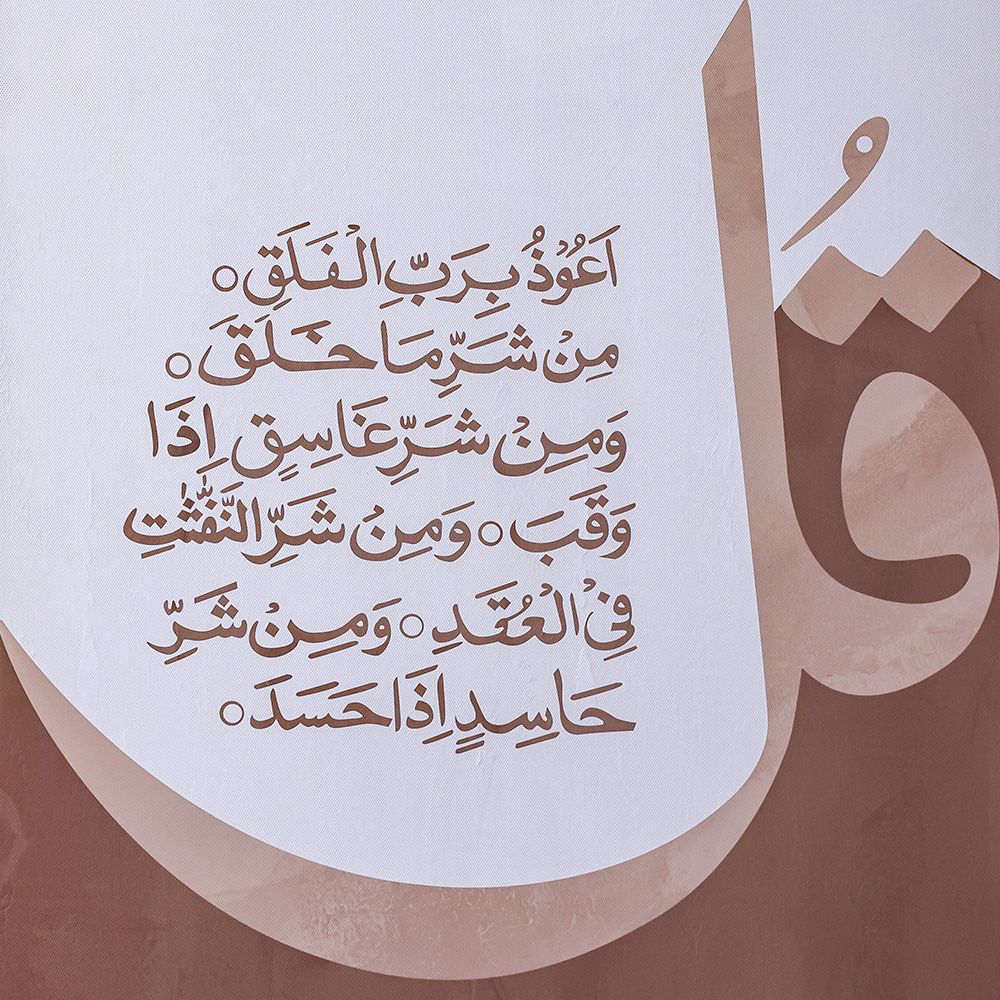 قُل
اَعُوْذُ بِرَبِّ الْفَلَقِ ○
مِنْ شَرِّ مَا خَلَقَ ○
وَمِنْ شَرِّ غَاسِقٍ اِذَا
وَقَبَ ○ وَمِنْ شَرِّ النَّفّٰثٰتِ
فِیْ الْعُقَدِ ○ وَمِنْ شَرِّ
حَاسِدٍ اِذَا حَسَدَ ○